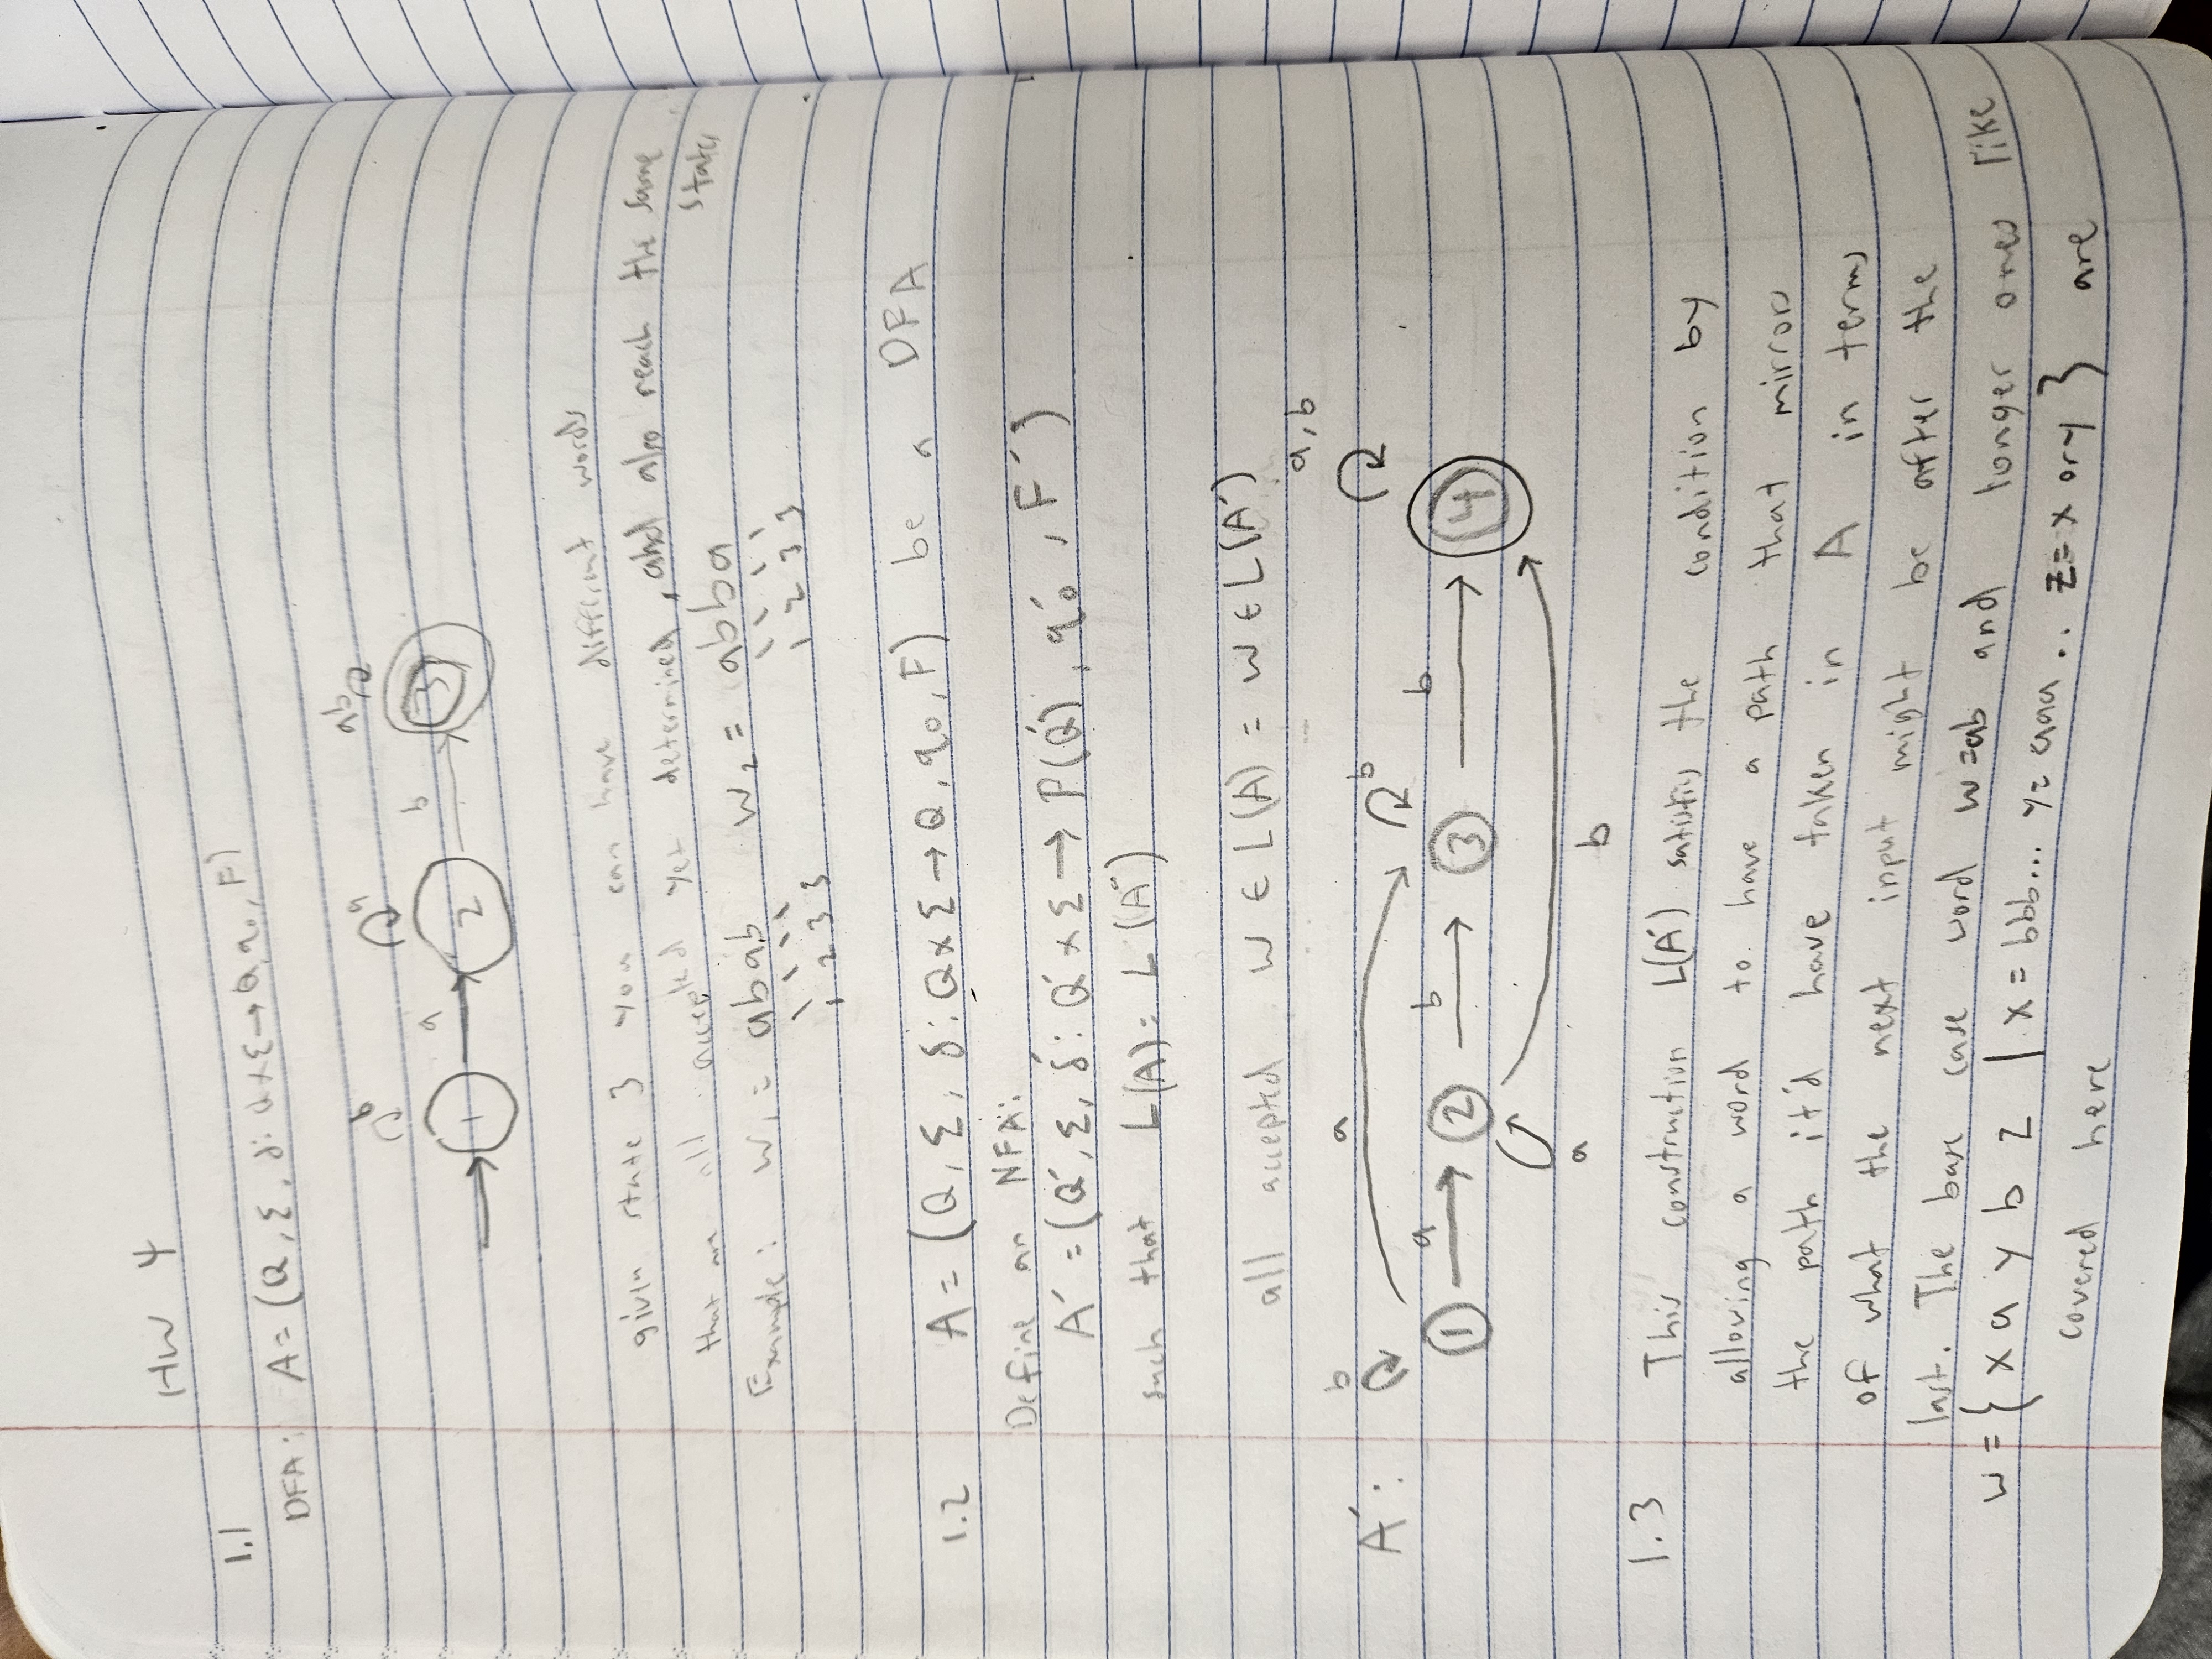 HW 4
1.1
DFA: A = (Q, Σ, δ: Q×Σ→Q, q₀, F)
b a ab
1 a 2 b 3
given state 3 you can have different words
that are all accepted yet determined, and also reach the same
state
Example: W₁ = abab W₂ = abba
1 2 3 3 1 2 3 3
1.2 A = (Q, Σ, δ: Q×Σ→Q, q₀, F) be a DFA
Define an NFA:
A´ = (Q´, Σ, δ´: Q´×Σ → P(Q´), q´₀, F´)
such that L(A) = L(A´)
all accepted w ∈ L(A) = w ∈ L(A´)
a, b
A´: b a b
1 a 2 b 3 b 4
a b
1.3 This construction L(A´) satisfies the condition by
allowing a word to have a path that mirrors
the path it'd have taken in A in terms
of what the next input might be after the
last. The base case word w=ab and longer ones like
w = { x a y b z | x = bbb... y= aaa .. z=x or y } are
covered here